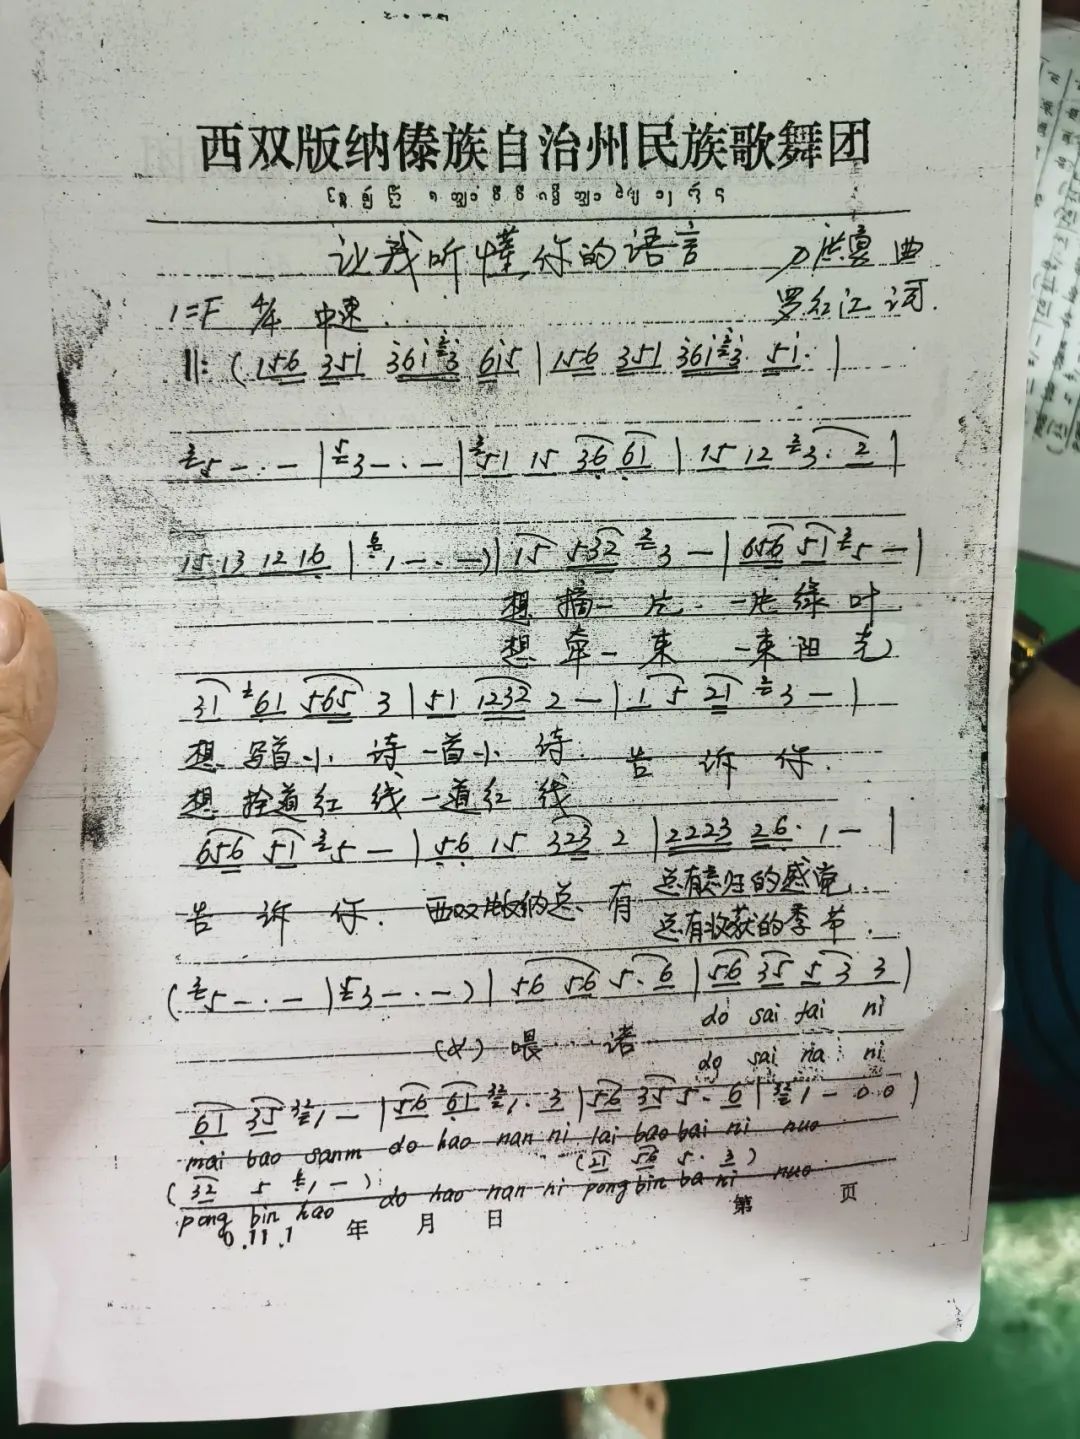 西双版纳傣族自治州民族歌舞团
让我听懂你的语言
刀洪勇 曲
1=F 4/4 中速
罗红江 词
‖: ( 156 351 361 3 615 | 156 351 361 3 51· |
5 - · - | 3 - · - | 51 15 36 61 | 15 12 3· 2 |
15 13 12 16 | 1 - · - ) | 15 532 3 - | 656 51 5 - |
想 摘一 片 一片绿叶
想 牵一 束 一束阳光
31 61 565 3 | 51 1232 2 - | 1 5 21 3 - |
想 写首小 诗 一首小 诗 告 诉 你
想 拴道红 线 一道红 线
656 51 5 - | 56 15 323 2 | 2223 26· 1 - |
告 诉 你 西双版纳总 有 总有意归的感觉
总有收获的季节
( 5 - · - | 3 - · - ) | 56 56 5· 6 | 56 35 5 3 3 |
do sai tai ni
喂 诺
do sai na ni
61 35 1 - | 56 61 1· 3 | 56 35 5· 6 | 1 - 0 0 |
mai bao sanm do hao nan ni tai bao bai ni nuo
( 32 5 1 - ) ( 21 56 5· 3 )
pong bin hao do hao nan ni pong bin ba ni nuo
0.11.1 年 月 日 第 页